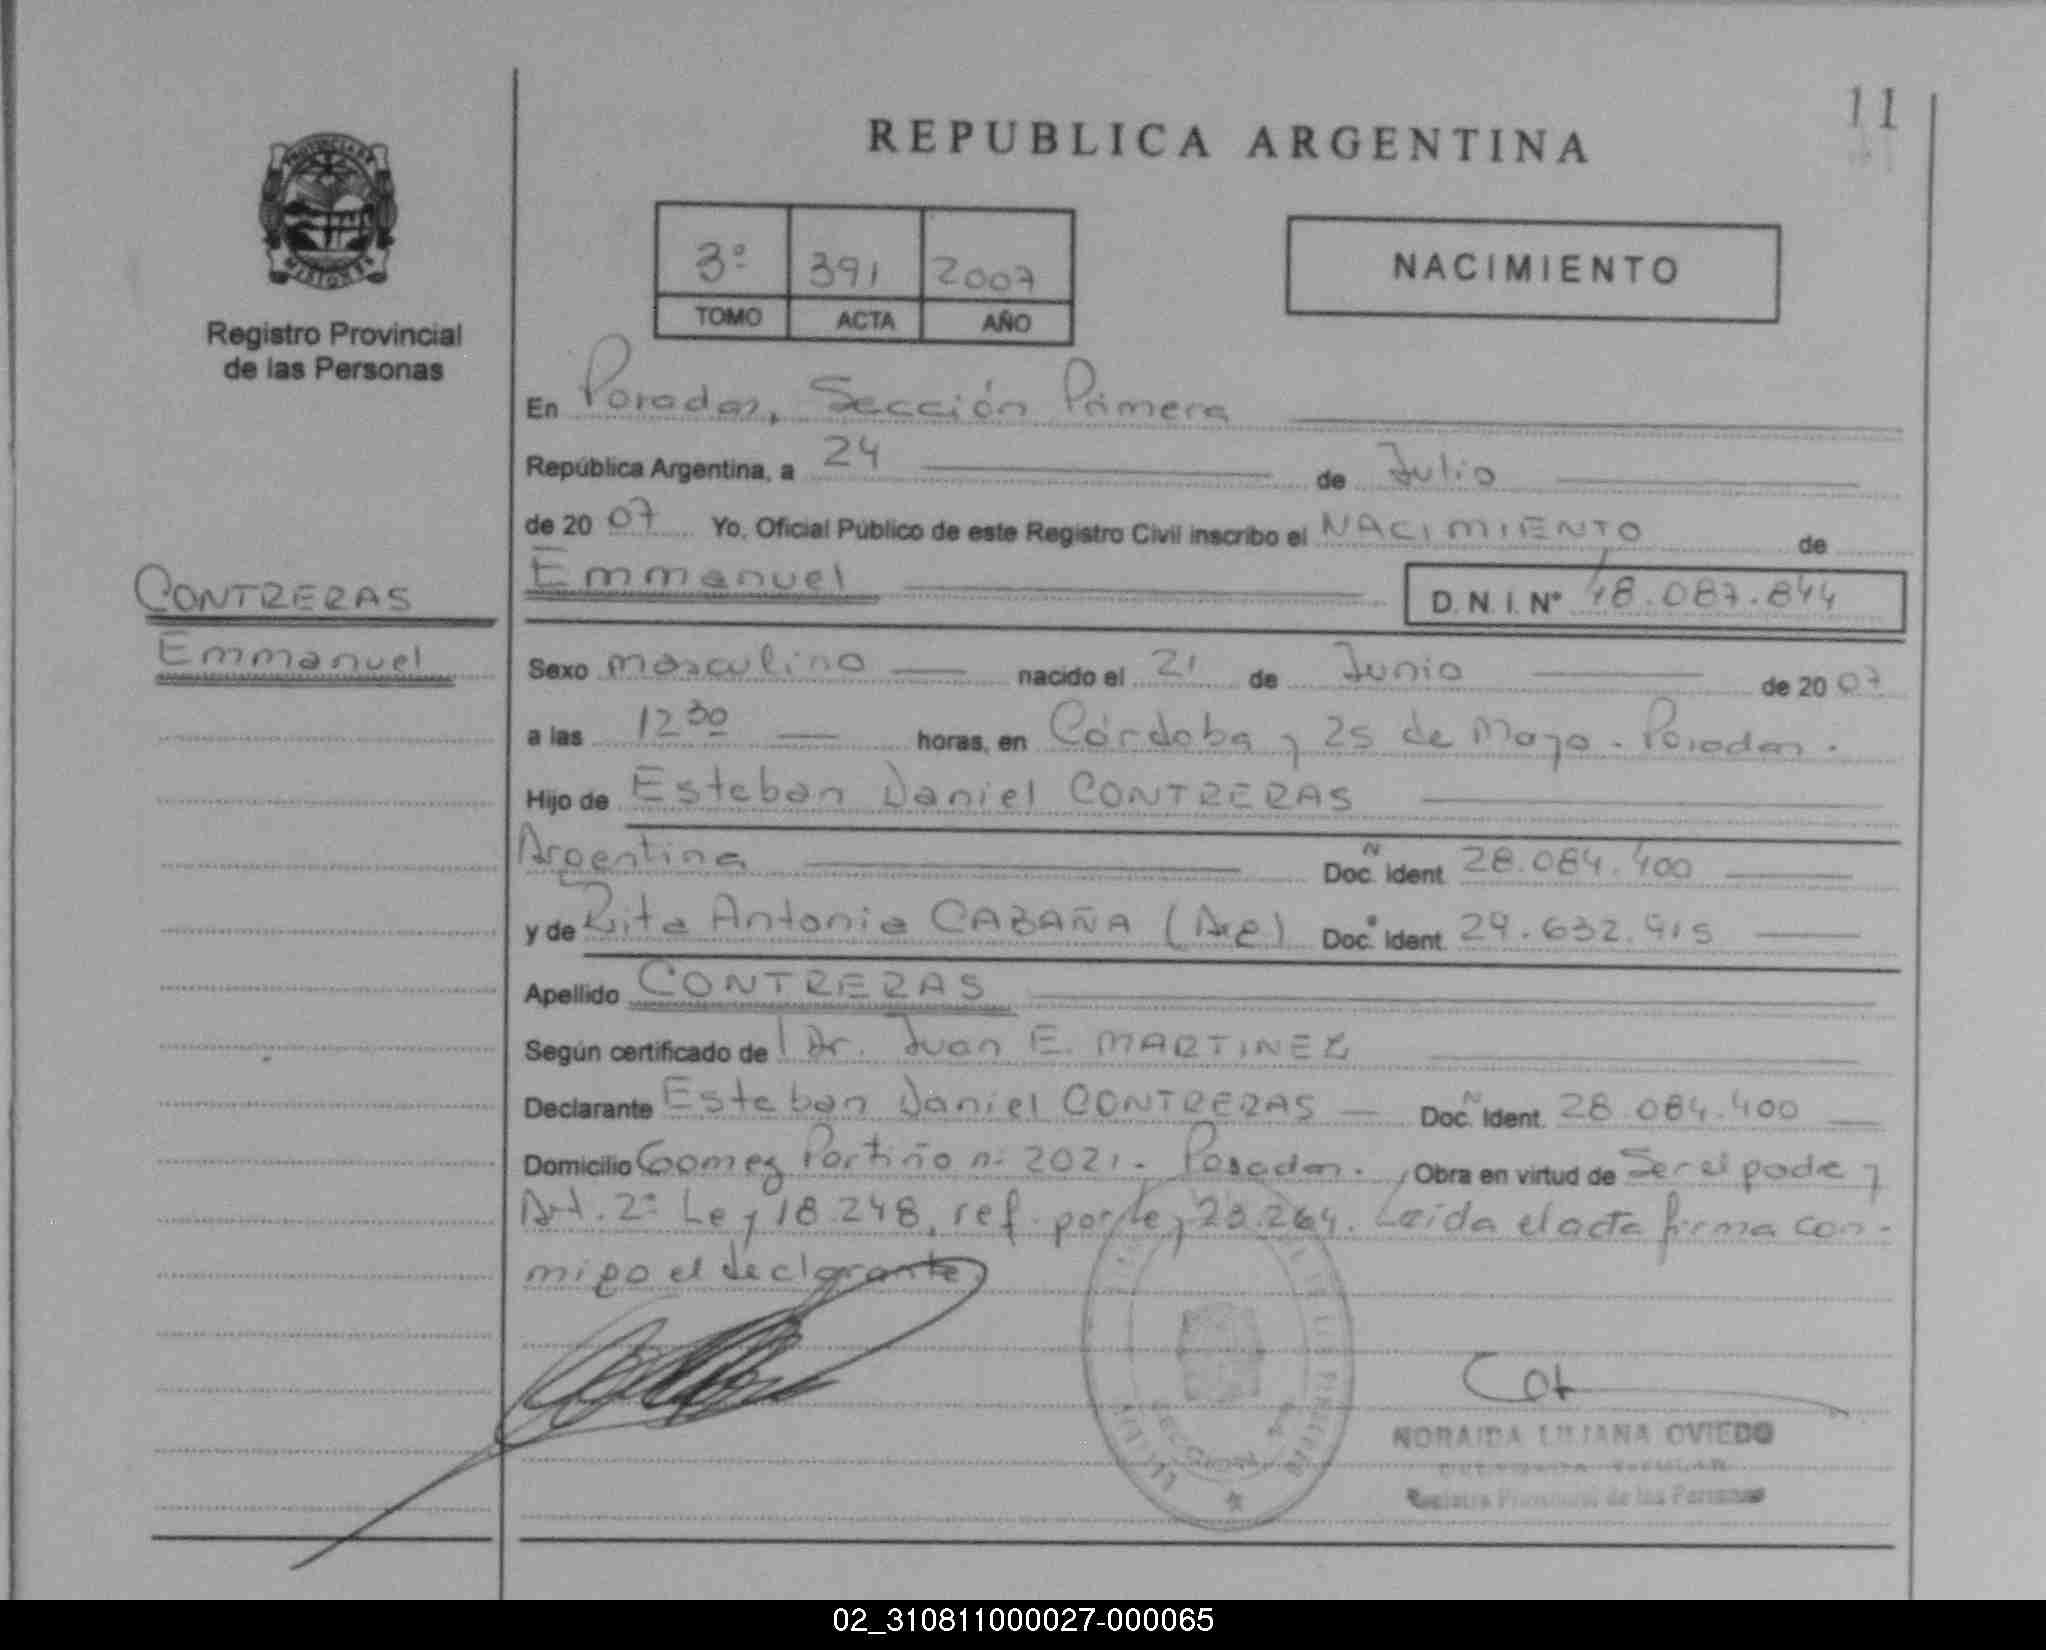 11
REPUBLICA ARGENTINA
PROVINCIA DE
MISIONES
Registro Provincial
de las Personas
3º 391 2007
TOMO ACTA AÑO
NACIMIENTO
En Posadas, Sección Primera
República Argentina, a 24 de Julio
de 2007 Yo, Oficial Público de este Registro Civil inscribo el NACIMIENTO de
Emmanuel D. N. I. Nº 48.087.844
CONTRERAS
Emmanuel
Sexo masculino nacido el 21 de Junio de 2007
a las 12 30 horas, en Córdoba y 25 de Mayo - Posadas.
Hijo de Esteban Daniel CONTRERAS
Argentina Doc. Ident. 28.084.400
y de Rita Antonia CABAÑA (Arg) Doc. Ident. 29.632.915
Apellido CONTRERAS
Según certificado de Dr. Juan E. MARTINEZ
Declarante Esteban Daniel CONTRERAS Doc. Ident. 28.084.400
Domicilio Gomez Portiño nº 2021. Posadas. Obra en virtud de Ser el padre y
Art. 2º Ley 18.248, ref. por ley 23.264. Leída el acta firma con-
migo el declarante.
SECCION
NORAIDA LILIANA OVIEDO
Registro Provincial de las Personas
02_310811000027-000065